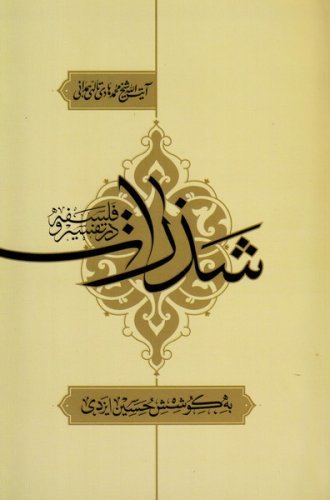 آیت الله شیخ محمد هادی تالهی همدانی
شذرات
در تفسیر و فلسفه
به کوشش حسین ایزدی